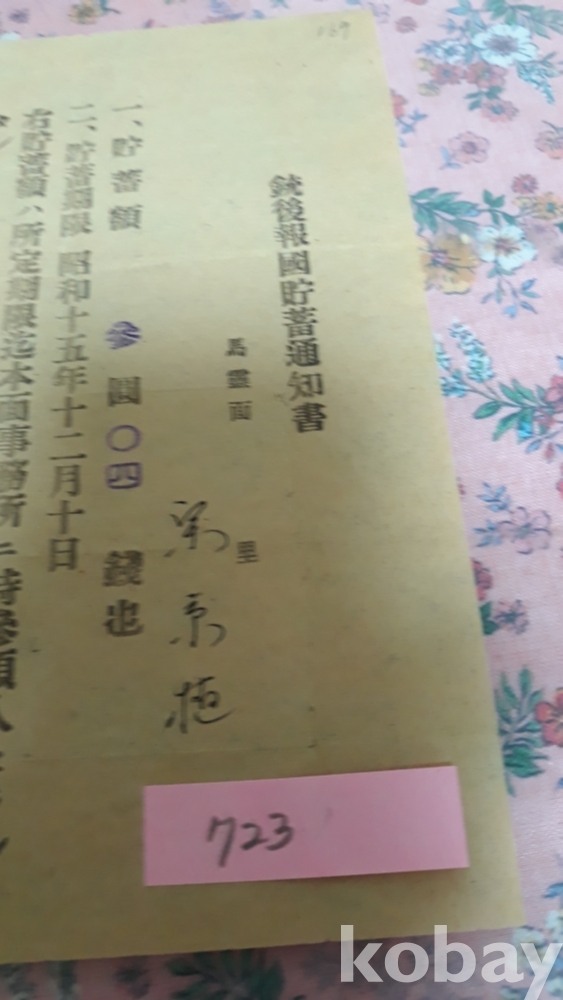 169
銃後報國貯蓄通知書
馬靈面
里
一、貯蓄額 參圓〇四錢也
二、貯蓄期限 昭和十五年十二月十日
右貯蓄額ハ所定期限迄本面事務所ニ持參頂
723
kobay